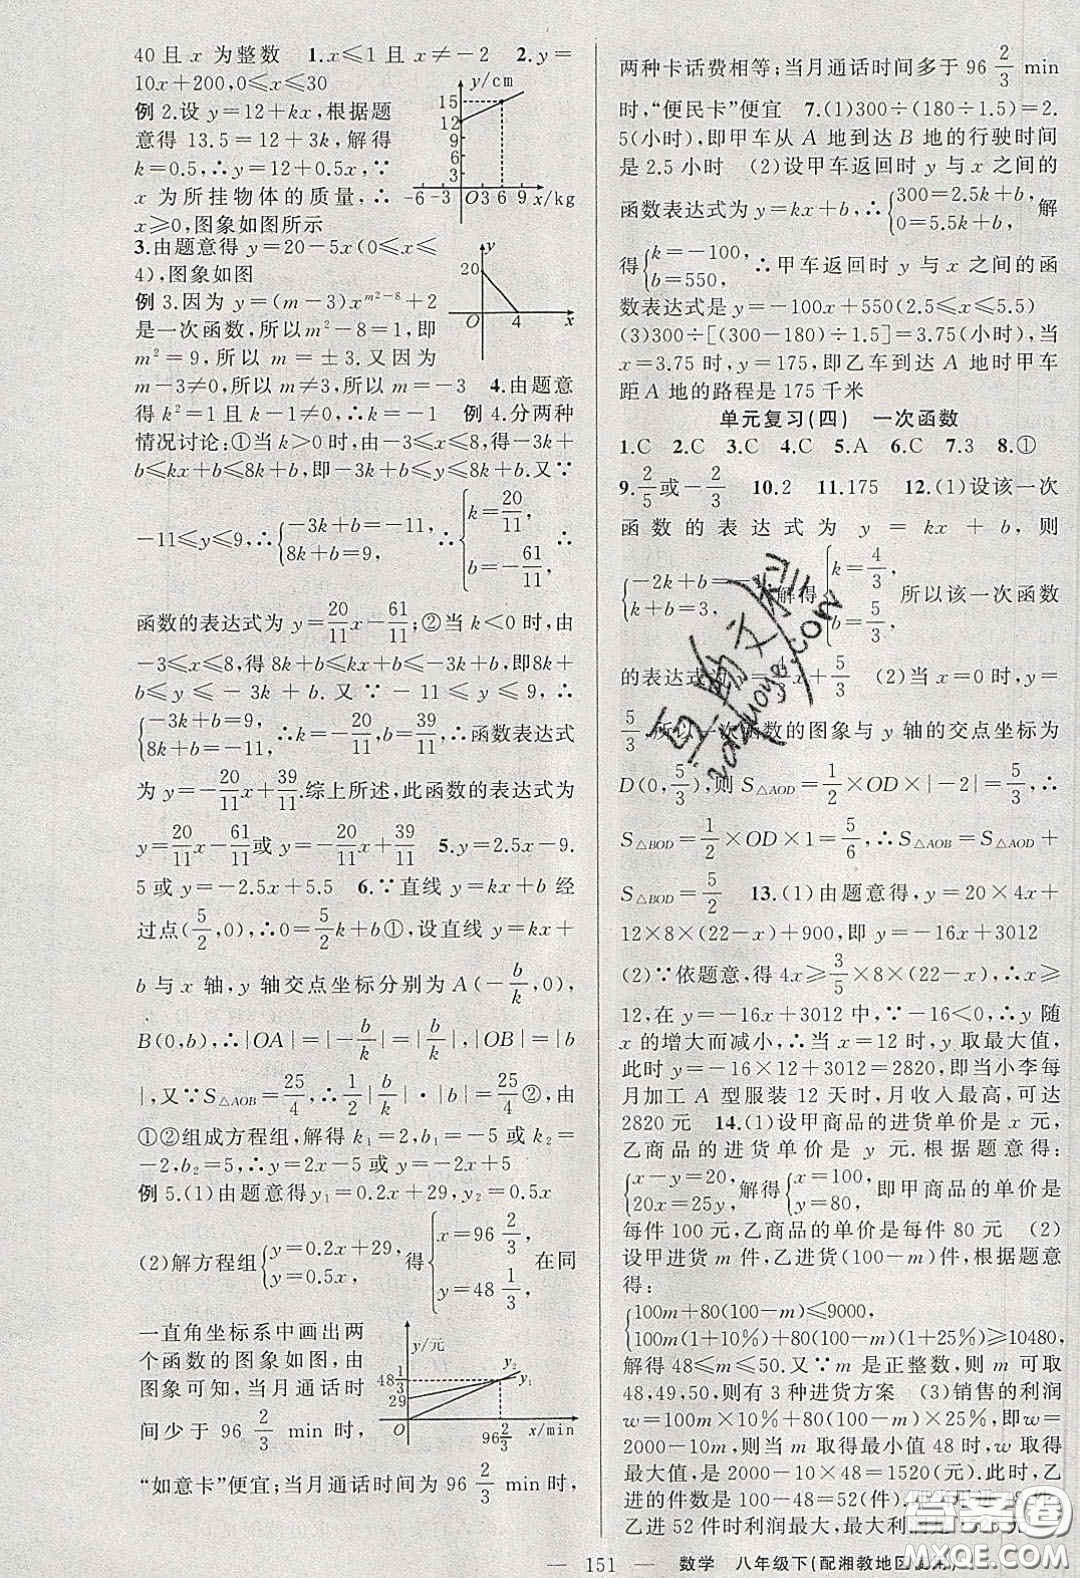 40且 x 为整数  1.x≤1且x≠-2  2.y=
10x+200,0≤x≤30
例 2.设 y=12+kx,根据题
意得 13.5=12+3k,解得
k=0.5,∴y=12+0.5x,∵
x 为所挂物体的质量,∴
x≥0,图象如图所示
y/cm
15
12
9
6
3
-6 -3 O 3 6 9 x/kg
3.由题意得 y=20-5x(0≤x≤
4),图象如图
y
20
O 4 x
例 3.因为 y=(m-3)x^{m²-8}+2
是一次函数,所以 m²-8=1,即
m²=9,所以 m=±3.又因为
m-3≠0,所以 m=-3  4.由题意
得 k²=1且 k-1≠0,∴k=-1  例 4.分两种
情况讨论:①当 k>0时,由-3≤x≤8,得-3k+
b≤kx+b≤8k+b,即-3k+b≤y≤8k+b.又∵
-11≤y≤9,∴{-3k+b=-11, 8k+b=9, ∴{k=20/11, b=-61/11, ∴
函数的表达式为 y=20/11x-61/11;②当 k<0时,由
-3≤x≤8,得 8k+b≤kx+b≤-3k+b,即8k+
b≤y≤-3k+b.又∵-11≤y≤9,∴
{-3k+b=9, 8k+b=-11, ∴{k=-20/11, b=39/11, ∴函数表达式
为 y=-20/11x+39/11.综上所述,此函数的表达式为
y=20/11x-61/11或 y=-20/11x+39/11  5.y=2.5x-9.
5或 y=-2.5x+5.5  6.∵直线 y=kx+b 经
过点(5/2,0),∴0=5/2k+b①,设直线 y=kx+
b 与 x 轴,y 轴交点坐标分别为 A(-b/k,0),
B(0,b),∴|OA|=|-b/k|=|b/k|,|OB|=|b
|,又∵S△AOB=25/4,∴1/2|b/k|·|b|=25/4②,由
①②组成方程组,解得 k₁=2,b₁=-5或 k₂=
-2,b₂=5,∴y=2x-5或 y=-2x+5
例 5.(1)由题意得y₁=0.2x+29,y₂=0.5x
(2)解方程组{y=0.2x+29, y=0.5x, 得{x=96 2/3, y=48 1/3, 在同
一直角坐标系中画出两
个函数的图象如图,由
图象可知,当月通话时
间少于 96 2/3 min 时,
y/元
y₂
y₁
48 1/3
29
O 96 2/3 x/min
“如意卡”便宜;当月通话时间为 96 2/3 min 时,
两种卡话费相等;当月通话时间多于 96 2/3 min
时,“便民卡”便宜  7.(1)300÷(180÷1.5)=2.
5(小时),即甲车从 A 地到达 B 地的行驶时间
是 2.5 小时  (2)设甲车返回时 y 与 x 之间的
函数表达式为 y=kx+b,∴{300=2.5k+b, 0=5.5k+b, 解
得{k=-100, b=550, ∴甲车返回时 y 与 x 之间的函
数表达式是 y=-100x+550(2.5≤x≤5.5)
(3)300÷[(300-180)÷1.5]=3.75(小时),当
x=3.75 时,y=175,即乙车到达 A 地时甲车
距 A 地的路程是 175 千米
单元复习(四)  一次函数
1.C  2.C  3.C  4.C  5.A  6.C  7.3  8.①
9.2/5或-2/3  10.2  11.175  12.(1)设该一次
函数的表达式为 y=kx+b,则
{-2k+b= k+b=3, 解得{k=4/3, b=5/3, 所以该一次函数
的表达式 x+5/3  (2)当 x=0时,y=
5/3,所以一次函数的图象与 y 轴的交点坐标为
D(0,5/3),则 S△AOD=1/2×OD×|-2|=5/3,∴
S△BOD=1/2×OD×1=5/6,∴S△AOB=S△AOD+
S△BOD=5/2  13.(1)由题意得,y=20×4x+
12×8×(22-x)+900,即 y=-16x+3012
(2)∵依题意,得 4x≥3/5×8×(22-x),∴x≥
12,在 y=-16x+3012中,∵-16<0,∴y 随
x 的增大而减小,∴当 x=12 时,y 取最大值,
此时 y=-16×12+3012=2820,即当小李每
月加工 A 型服装 12 天时,月收入最高,可达
2820 元  14.(1)设甲商品的进货单价是 x 元,
乙商品的进货单价是 y 元.根据题意得:
{x-y=20, 20x=25y, 解得{x=100, y=80, 即甲商品的单价是
每件 100 元,乙商品的单价是每件 80 元  (2)
设甲进货 m 件,乙进货(100-m)件,根据题意
得:
{100m+80(100-m)≤9000,
100m(1+10%)+80(100-m)(1+25%)≥10480,
解得 48≤m≤50.又∵m 是正整数,则 m 可取
48,49,50,则有 3 种进货方案  (3)销售的利润
w=100m×10%+80(100-m)×25%,即w=
2000-10m,则当 m 取得最小值 48 时,w 取得
最大值,是 2000-10×48=1520(元).此时,乙
进的件数是 100-48=52(件).
乙进 52 件时利润最大,最大利润
151  数学  八年级下(配湘教地区使用)
百助文科
答案圈
MXQE.COM